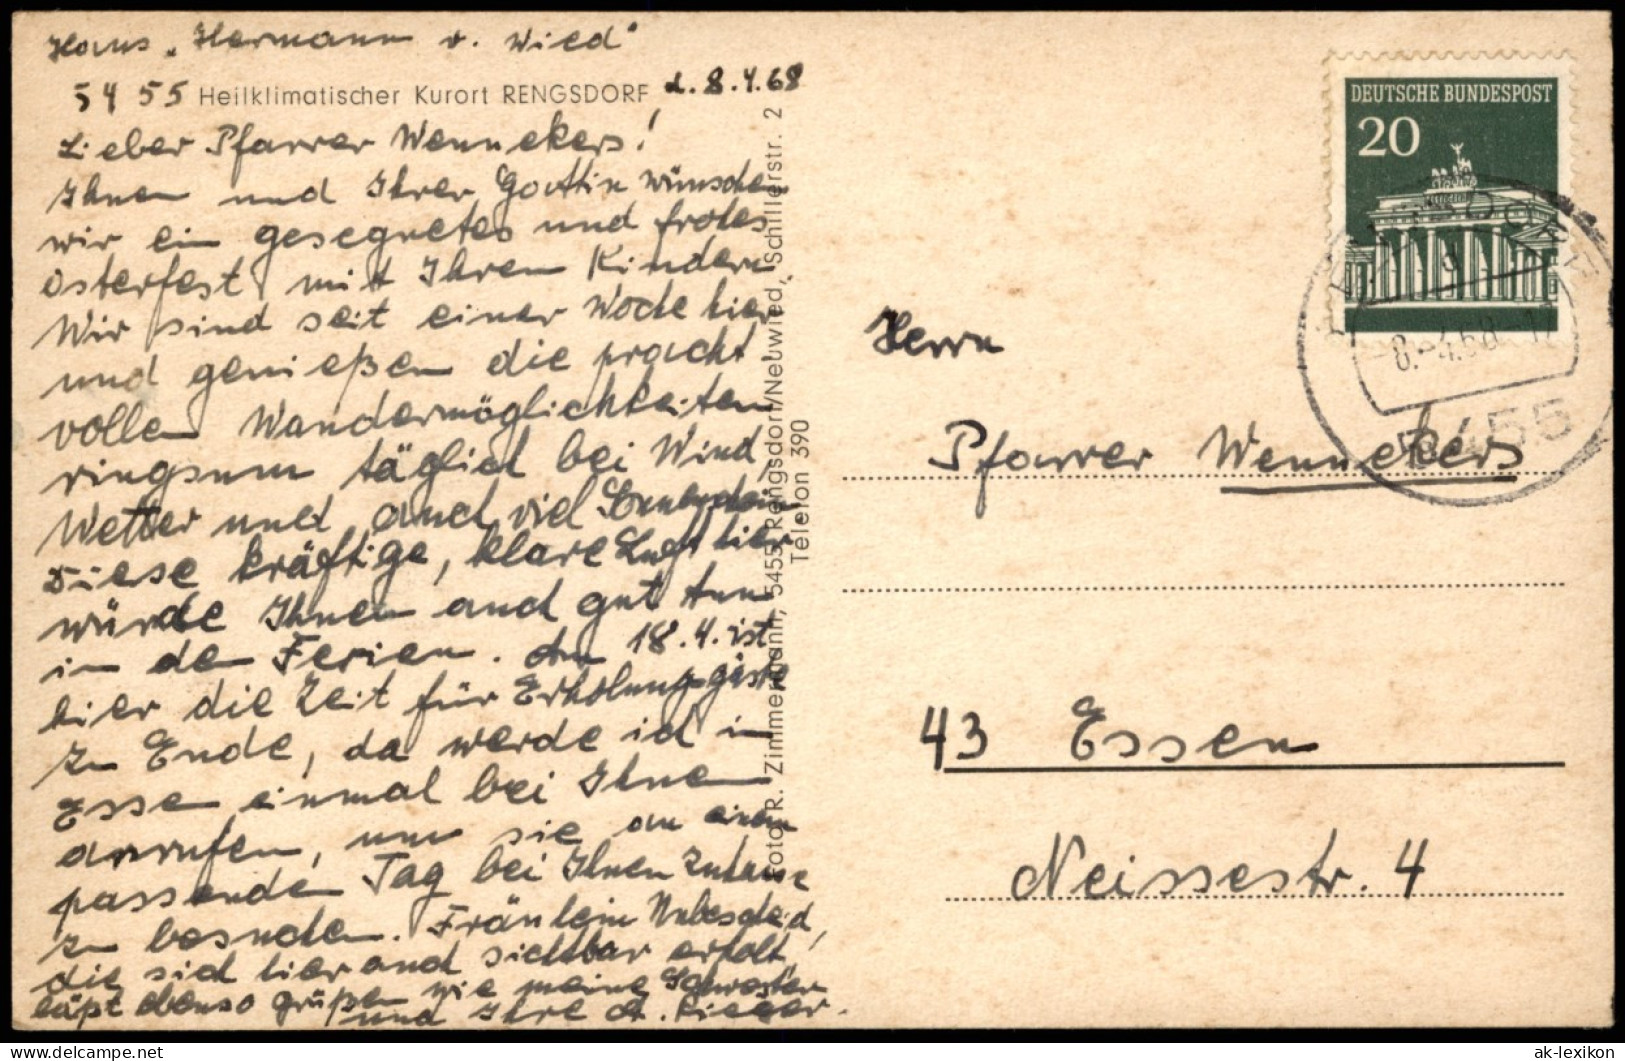 Haus „Hermann v. Wied"
5455 Heilklimatischer Kurort RENGSDORF d. 8.4.68
Lieber Pfarrer Wennekers!
Ihnen und Ihrer Gattin wünschen
wir ein gesegnetes und frohes
Osterfest mit Ihren Kindern.
Wir sind seit einer Woche hier
und genießen die pracht
vollen Wandermöglichkeiten
ringsum täglich bei Wind,
Wetter und auch viel Sonnenschein
Diese kräftige, klare Luft hier
würde Ihnen auch gut tun
in den Ferien. Am 18.4. ist
hier die Zeit für Erholungsgäste
zu Ende, da werde ich in
Essen einmal bei Ihnen
anrufen, um sie an einem
passenden Tag bei Ihnen zuhause
zu besuchen. Fräulein
die sich hier auch sichtbar erholt,
läßt ebenso grüßen wie meine Schwester
und Ihre
Foto R. Zimmermann, 5455 Rengsdorf/Neuwied, Schillerstr. 2
Telefon 390
DEUTSCHE BUNDESPOST
20
RENGSDORF
-8.-4.68
5455
Herrn
Pfarrer Wennekers
43 Essen
Neissestr. 4
ak-lexikon
delcampe.net